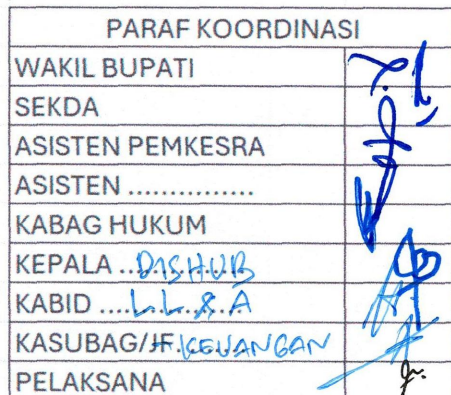 PARAF KOORDINASI
WAKIL BUPATI
SEKDA
ASISTEN PEMKESRA
ASISTEN ...............
KABAG HUKUM
KEPALA ..DISHUB
KABID ....L.L.&.A
KASUBAG/JF.KEUANGAN
PELAKSANA